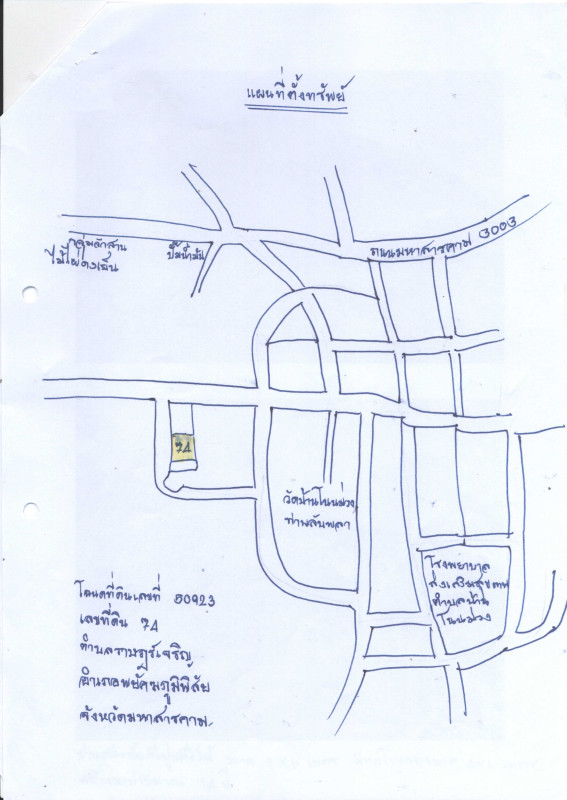 แผนที่ตั้งทรัพย์
ถนนมหาสารคาม 3003
กลุ่มจักสาน
ไม้ไผ่ดงเย็น
ปั๊มน้ำมัน
74
วัดบ้านโนนม่วง
ท่าพลับพลา
โรงพยาบาล
ส่งเสริมสุขภาพ
ตำบลบ้าน
โนนม่วง
โฉนดที่ดินเลขที่ 30923
เลขที่ดิน 74
ตำบลราษฎร์เจริญ
อำเภอพยัคฆภูมิพิสัย
จังหวัดมหาสารคาม